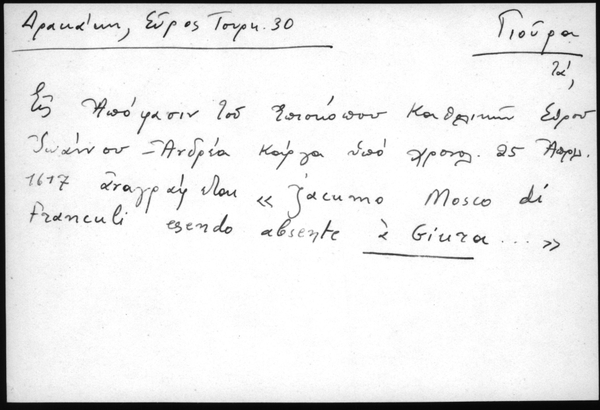 Δρακάκη, Σῦρος Τουρκ. 30
Γιοῦρα
τά,
Εἰς Ἀπόφασιν τοῦ Ἐπισκόπου Καθολικῶν Σύρου
Ἰωάννου-Ἀνδρέα Κάργα ὑπό χρονολ. 25 Ἀπρ.
1617 ἀναγράφεται « Jacumo Mosco di
Franculi esendo absente à Giura ... »